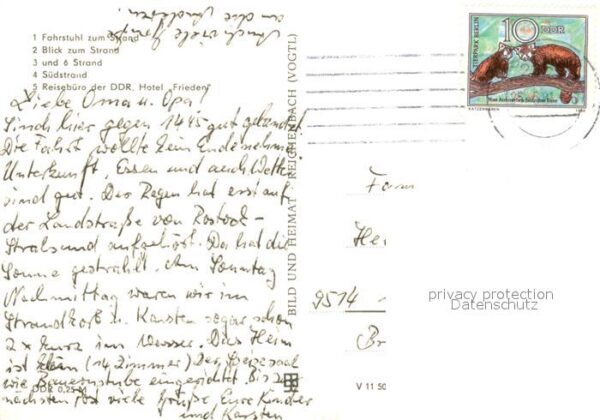 Auch viele Grüße
an die
1 Fahrstuhl zum Strand
2 Blick zum Strand
3 und 6 Strand
4 Südstrand
5 Reisebüro der DDR, Hotel „Frieden"
Liebe Oma u. Opa!
Sind hier gegen 14⁴⁵ gut gelandet.
Die Fahrt wollte kein Ende nehmen.
Unterkunft, Essen und auch Wetter
sind gut. Der Regen hat erst auf
der Landstraße von Rostock –
Stralsund aufgehört. Da hat die
Sonne gestrahlt. Am Sonntag
Nachmittag waren wir im
Strandkorb u. Karsten sogar schon
2 x kurz im Wasser. Das Heim
ist klein (14 Zimmer) Der Speisesaal
wie Bauernstube eingerichtet. Bis zum
nächsten mal viele Grüße Eure Kinder
und Karsten
DDR 0,25 M
BILD UND HEIMAT · REICHENBACH (VOGTL)
V 11 50
TIERPARK BERLIN
10 DDR
KATZENBÄREN
Fam
He
9514
privacy protection
Datenschutz